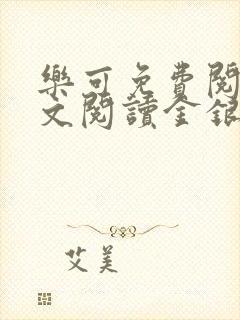 樂可免費閱
文閱讀金銀
艾美